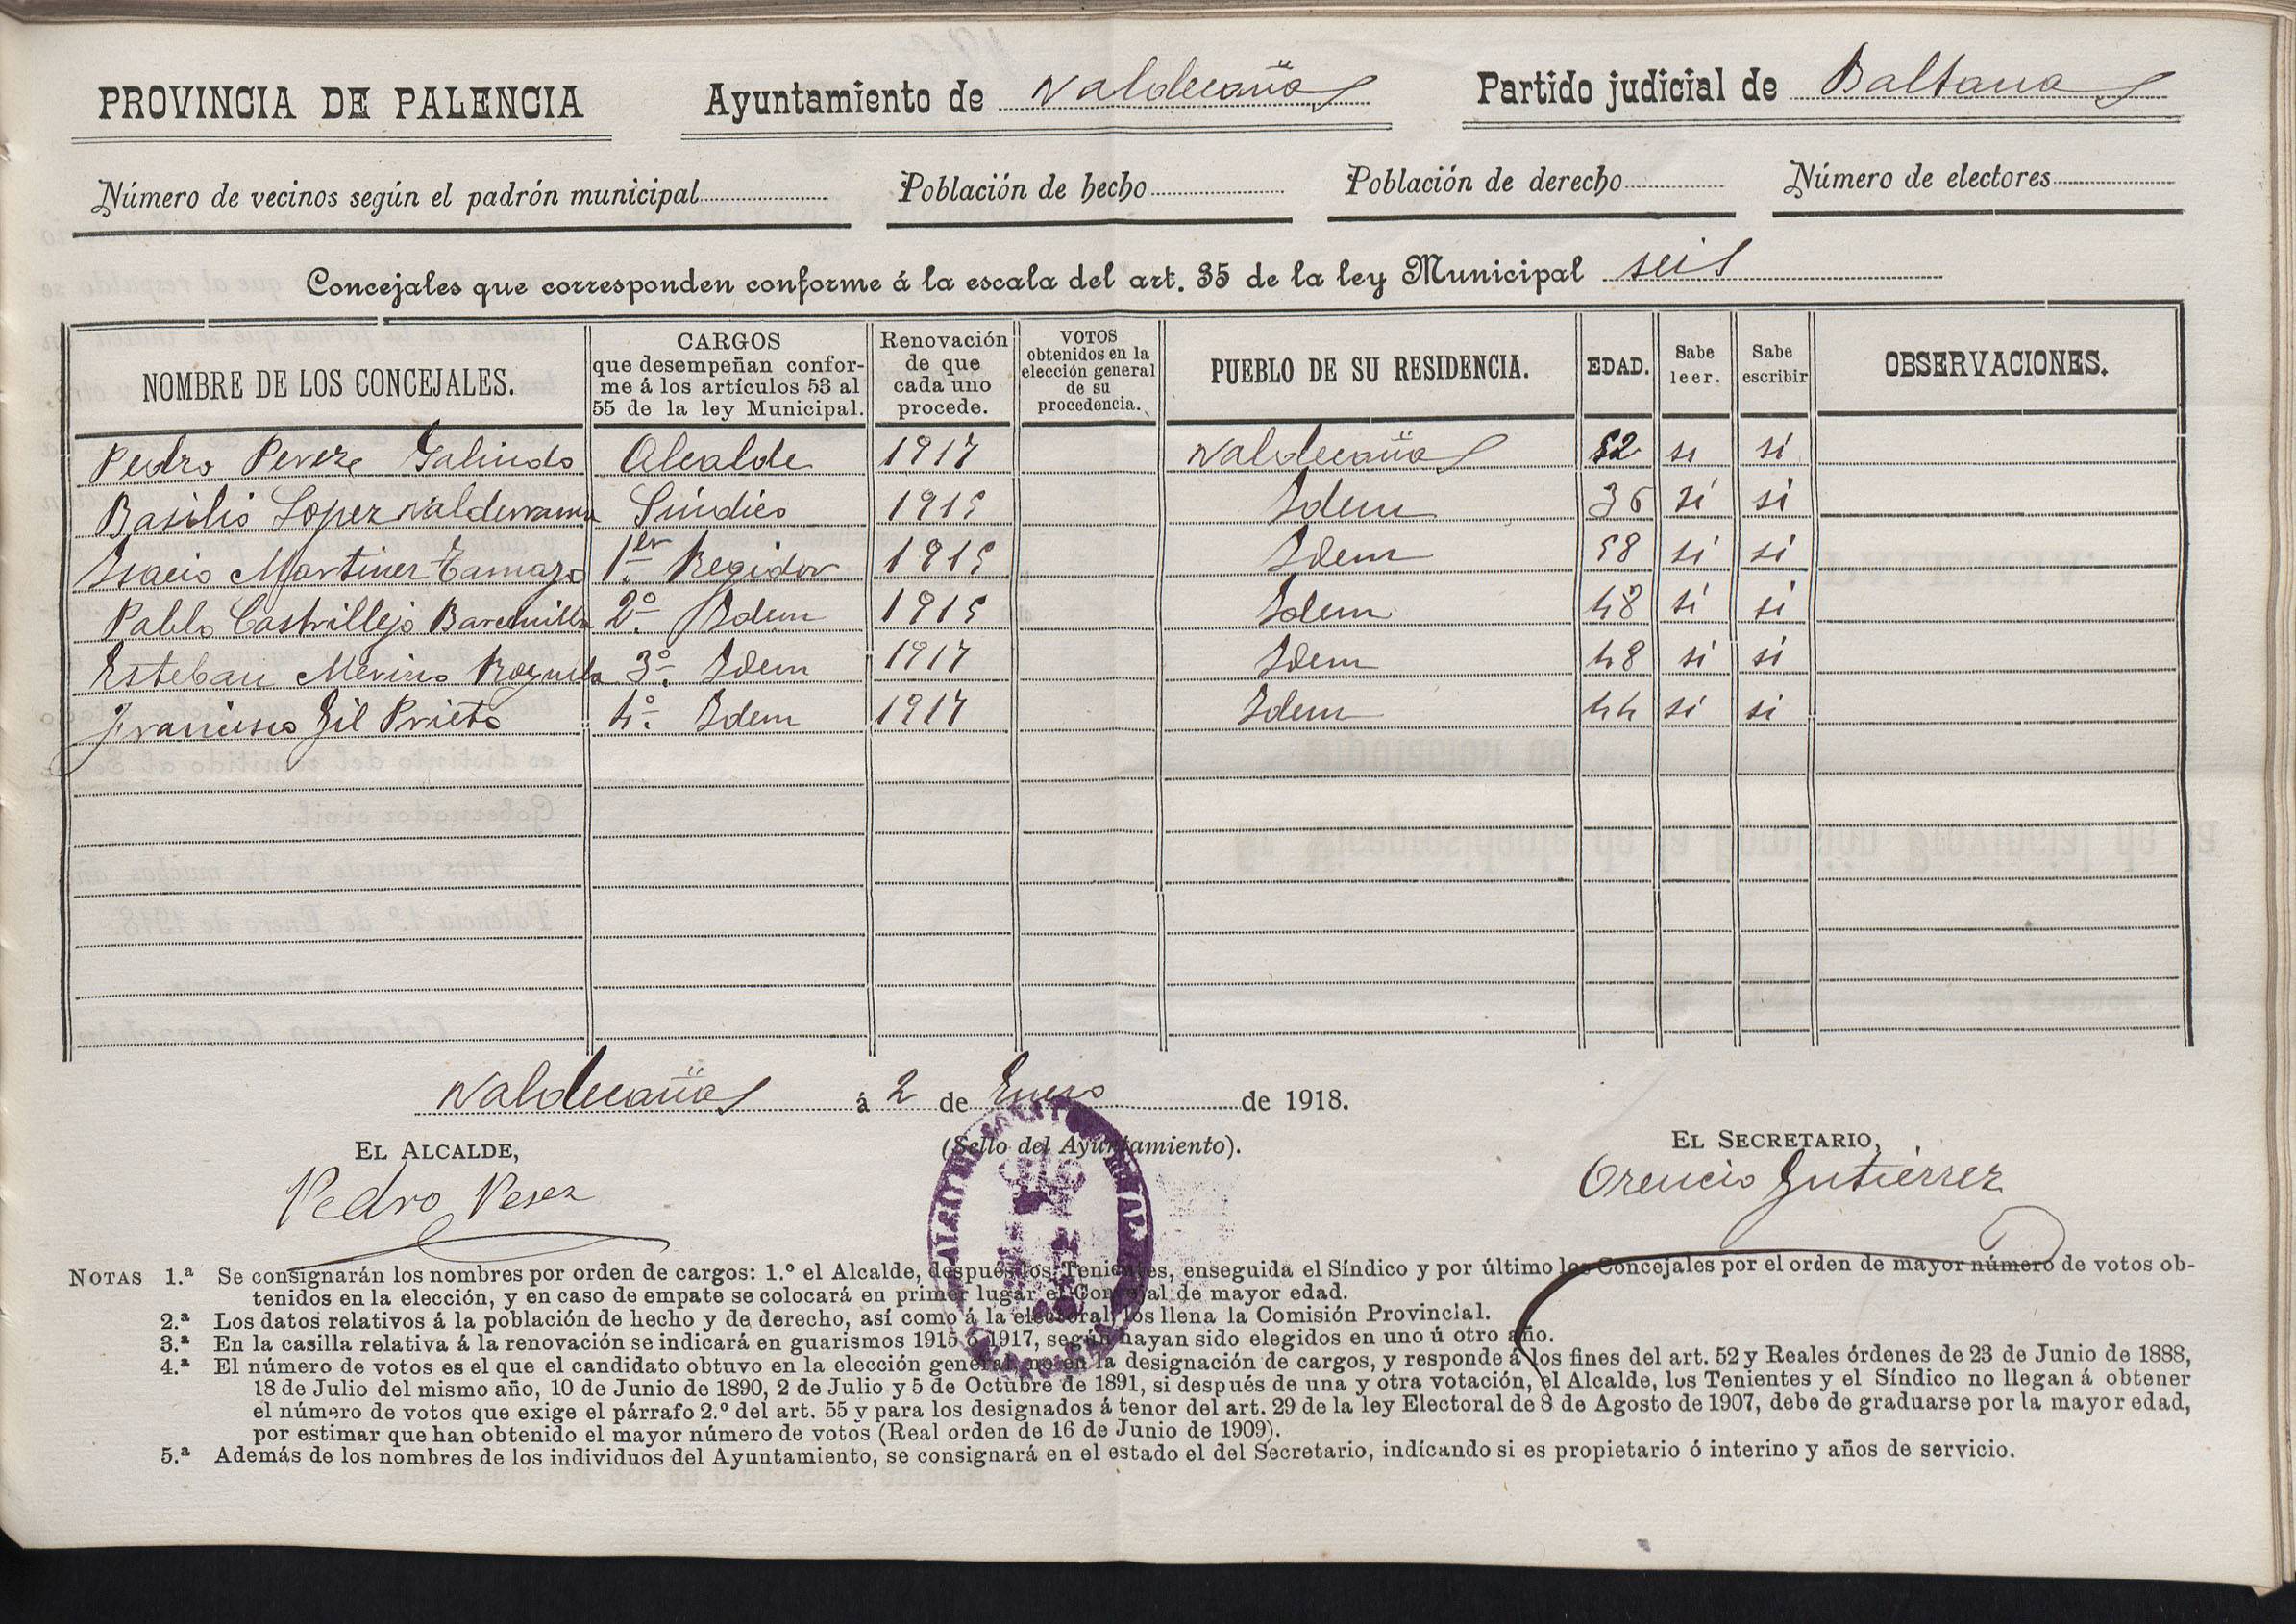 PROVINCIA DE PALENCIA Ayuntamiento de Valdecañas Partido judicial de Baltanas
Número de vecinos según el padrón municipal Población de hecho Población de derecho Número de electores
Concejales que corresponden conforme á la escala del art. 35 de la ley Municipal seis
NOMBRE DE LOS CONCEJALES. CARGOS que desempeñan conforme á los artículos 53 al 55 de la ley Municipal. Renovación de que cada uno procede. VOTOS obtenidos en la elección general de su procedencia. PUEBLO DE SU RESIDENCIA. EDAD. Sabe leer. Sabe escribir OBSERVACIONES.
Pedro Perez Galindo Alcalde 1917 Valdecañas 52 si si
Basilio Lopez Valderrama Sindico 1915 Idem 36 si si
Isacio Martinez Tamazo 1er Regidor 1915 Idem 58 si si
Pablo Castrillejo 2º Idem 1915 Idem 48 si si
Esteban Merino 3º Idem 1917 Idem 48 si si
Francisco Gil Prieto 4º Idem 1917 Idem 44 si si
Valdecañas á 2 de Enero de 1918.
EL ALCALDE, (Sello del Ayuntamiento). EL SECRETARIO,
Pedro Perez Orencio Gutierrez
NOTAS 1.ª Se consignarán los nombres por orden de cargos: 1.º el Alcalde, después los Tenientes, enseguida el Síndico y por último los Concejales por el orden de mayor número de votos ob-
tenidos en la elección, y en caso de empate se colocará en primer lugar el Concejal de mayor edad.
2.ª Los datos relativos á la población de hecho y de derecho, así como á la electoral, los llena la Comisión Provincial.
3.ª En la casilla relativa á la renovación se indicará en guarismos 1915 ó 1917, según hayan sido elegidos en uno ú otro año.
4.ª El número de votos es el que el candidato obtuvo en la elección general, no en la designación de cargos, y responde á los fines del art. 52 y Reales órdenes de 23 de Junio de 1888,
18 de Julio del mismo año, 10 de Junio de 1890, 2 de Julio y 5 de Octubre de 1891, si después de una y otra votación, el Alcalde, los Tenientes y el Síndico no llegan á obtener
el número de votos que exige el párrafo 2.º del art. 55 y para los designados á tenor del art. 29 de la ley Electoral de 8 de Agosto de 1907, debe de graduarse por la mayor edad,
por estimar que han obtenido el mayor número de votos (Real orden de 16 de Junio de 1909).
5.ª Además de los nombres de los individuos del Ayuntamiento, se consignará en el estado el del Secretario, indicando si es propietario ó interino y años de servicio.